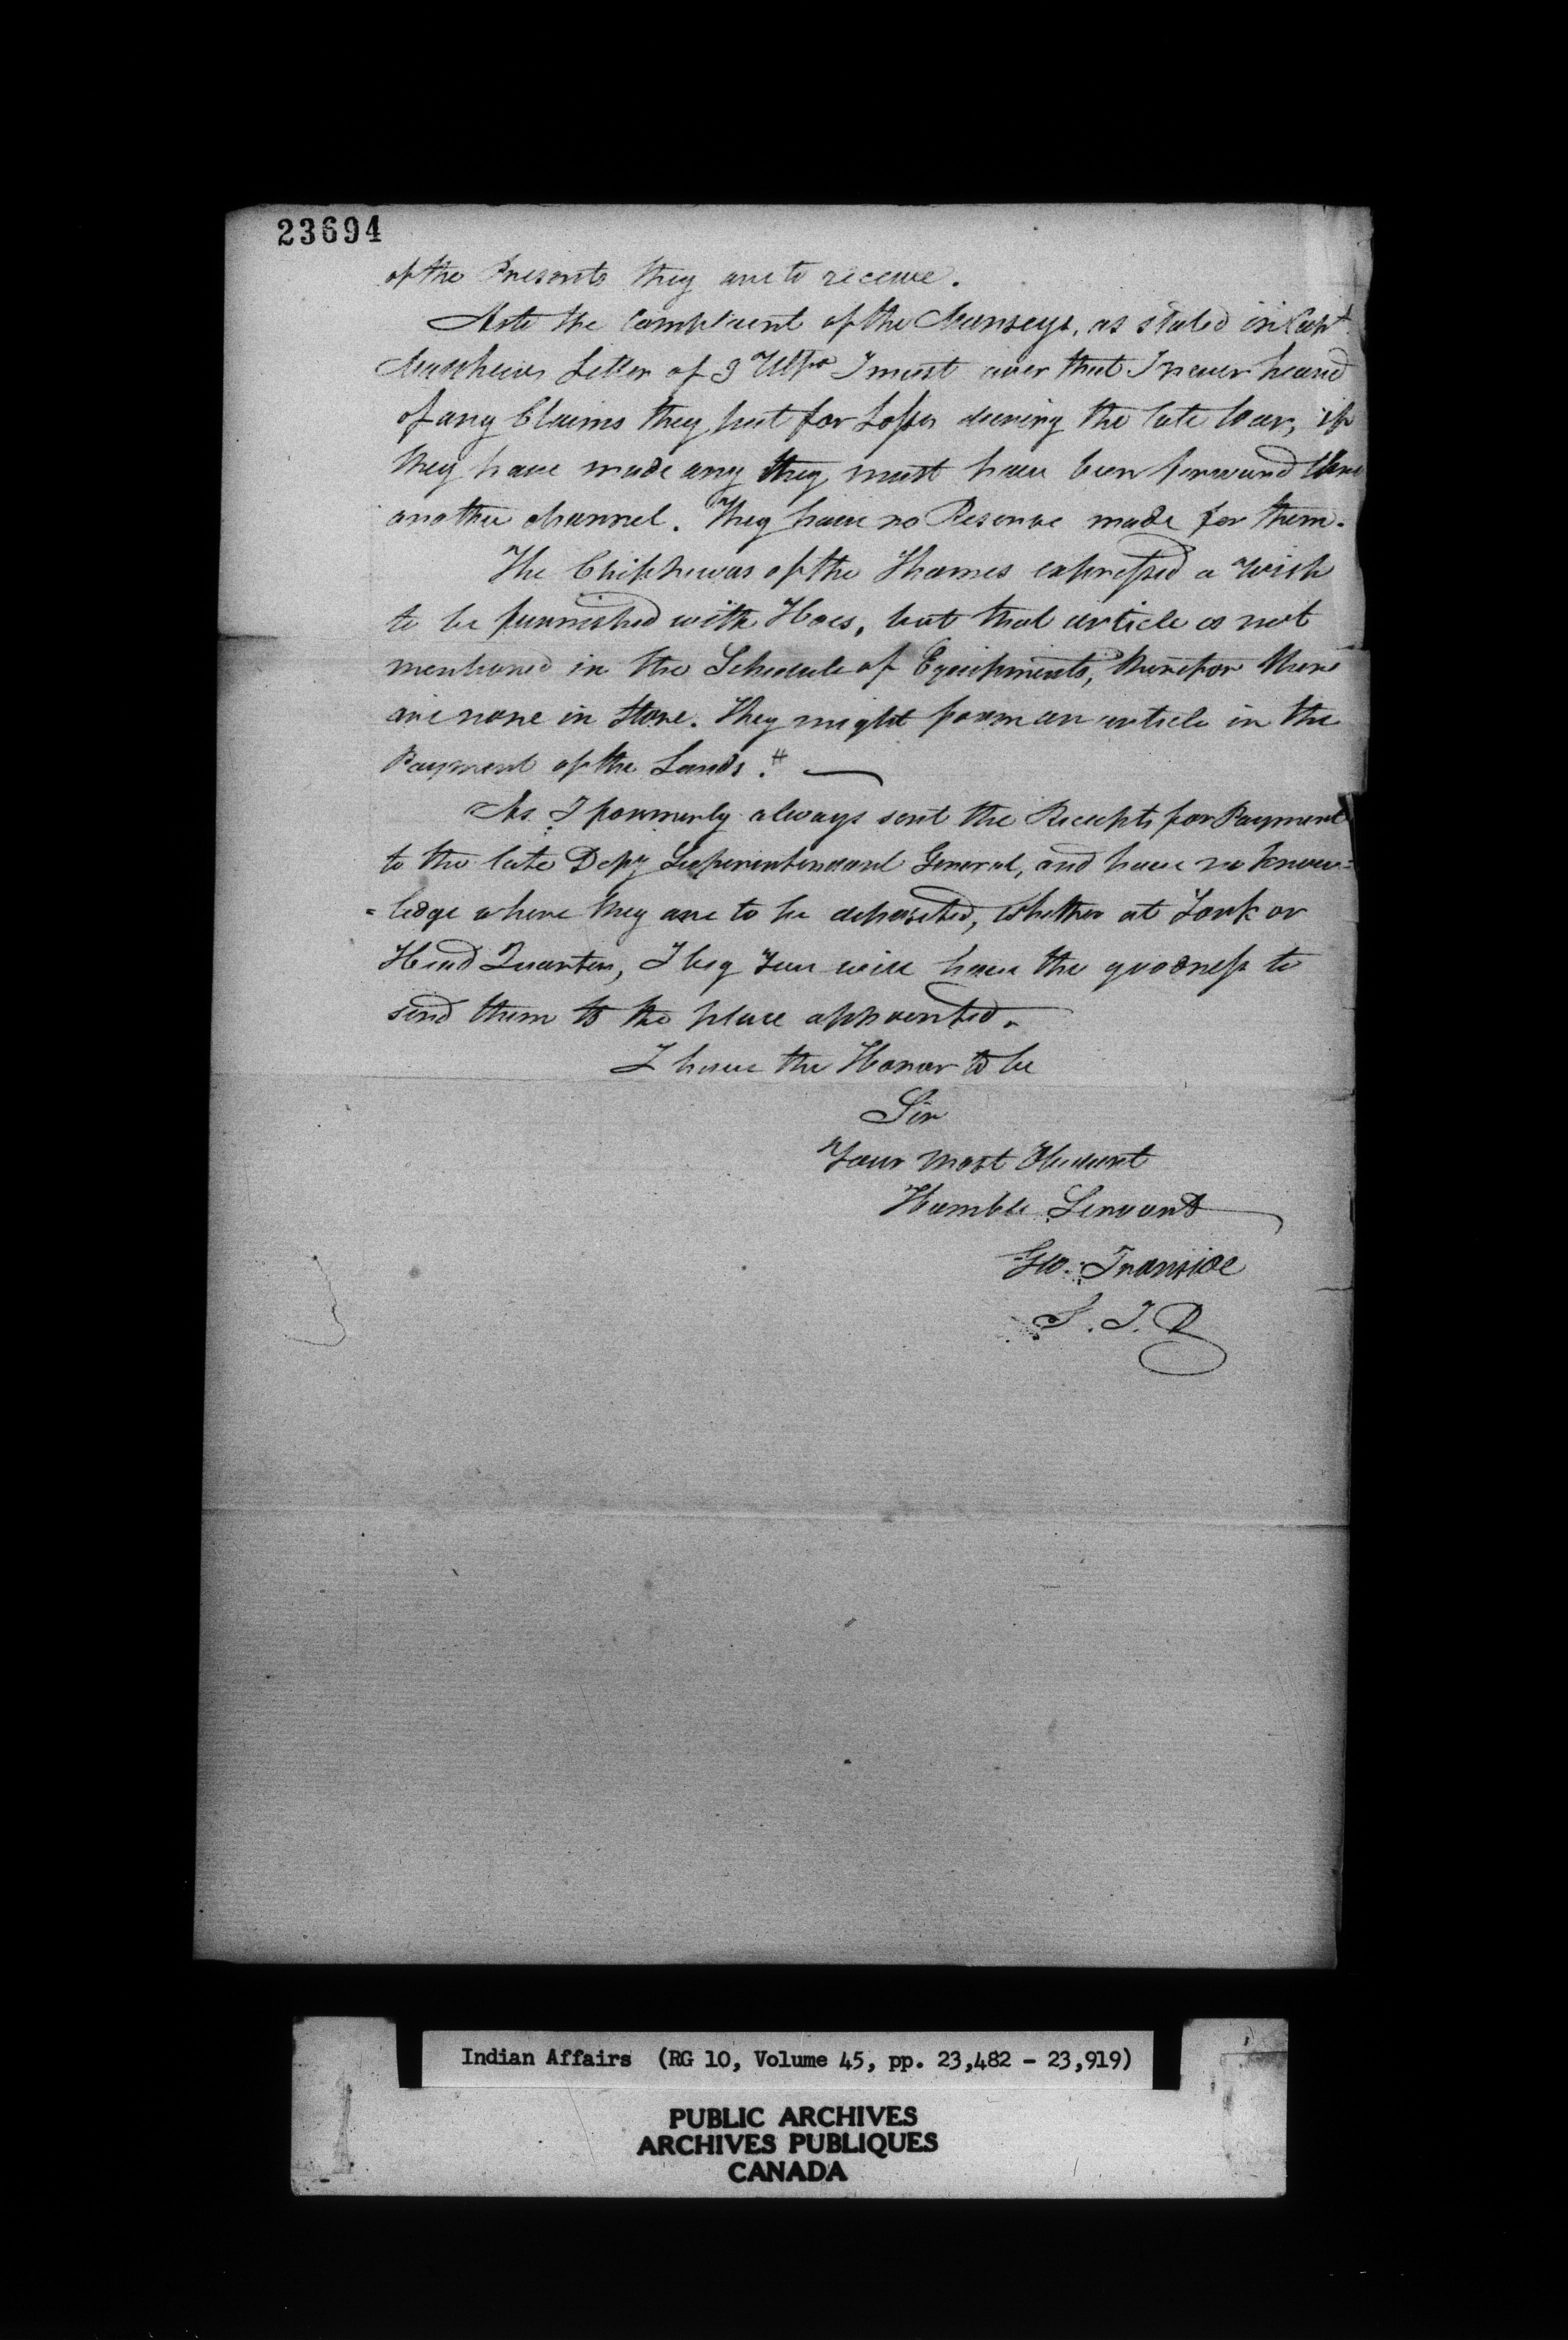 23694
of the Presents they are to receive.
As to the Complaint of the Munseys, as stated in Capt
Matthews Letter of 9 Ulto I must aver that I never heard
of any Claims they put for Losses during the late War, if
they have made any they must have been forward thro
another channel. They have no Reserve made for them.
The Chippewas of the Thames expressed a wish
to be furnished with Hoes, but that article is not
mentioned in the Schedule of Equipments, therefor there
are none in Store. They might form an article in the
Payment of the Lands. #
As I formerly always sent the Receipts for Payment
to the late Depy Superintendant General, and have no know=
=ledge where they are to be deposited, whether at York or
Head Quarters, I beg You will have the goodness to
send them to the place appointed.
I have the Honor to be
Sir
Your most Obedient
Humble Servant
Geo: Ironside
S. I. D
Indian Affairs (RG 10, Volume 45, pp. 23,482 - 23,919)
PUBLIC ARCHIVES
ARCHIVES PUBLIQUES
CANADA